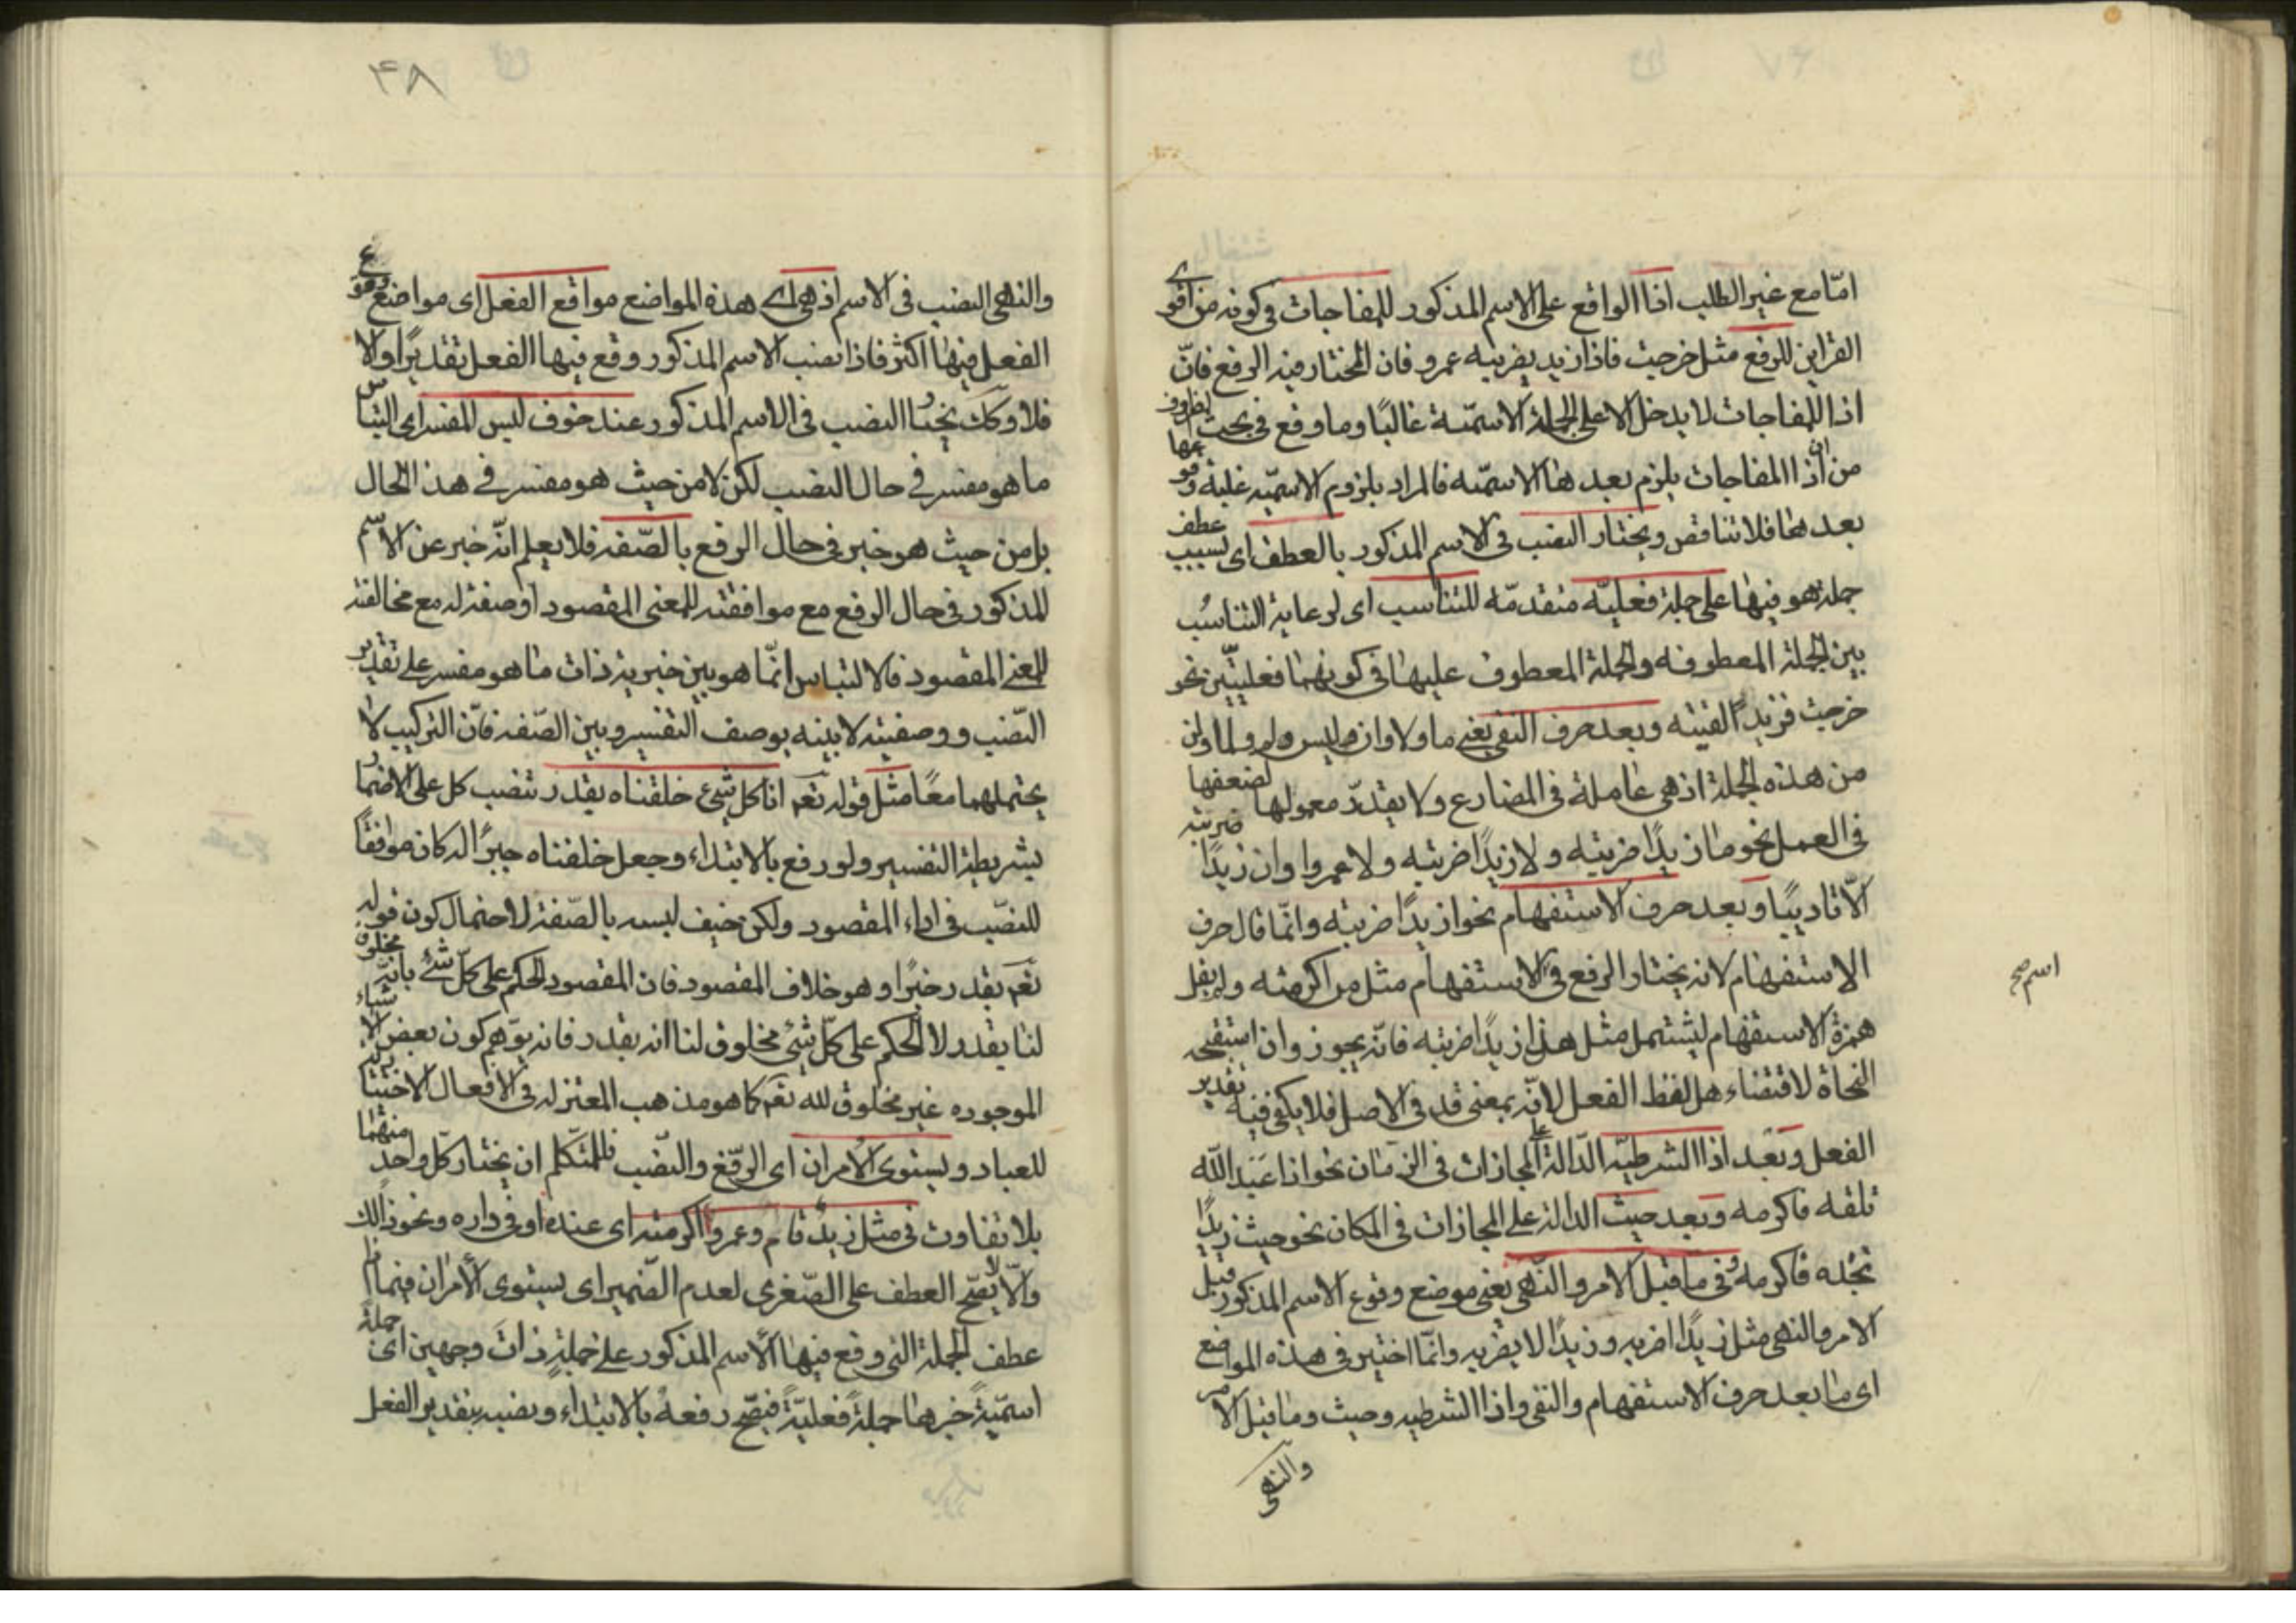 امّا مع غير الطلب اذا الواقع على الاسم المذكور للمفاجات فى كونه من اقوى
القراين للرفع مثل خرجت فاذا زيد يضربه عمرو فان المختار فيه الرفع فانّ
اذا للمفاجات لا يدخل الا على الجملة الاسمّية غالبًا وما وقع فى بحث الظروف
من ان اذا المفاجات يلزم بعدها الاسمّيه فالمراد بلزوم الاسمّيه غلبة وقوعها
بعدها فلا تناقض ويختار النصب فى الاسم المذكور بالعطف اى بسبب عطف
جملة هو فيها على جملة فعليّه متقدمّه للتناسب اى لرعاية التناسُب
بين الجملة المعطوفه والجملة المعطوف عليها فى كونهما فعليتّين نحو
خرجت فزيدًا لقيته وبعد حرف النفى يعنى ما ولا وان وليس ولم ولما ولن
من هذه الجملة اذ هى عاملة فى المضارع ولا يقدّر معمولها لضعفها
فى العمل نحو ما زيدًا ضربته ولا زيدًا ضربته ولا عمروا وان زيدًا ضربته
الّا تاديبًا وبعد حرف الاستفهام نحو ازيدًا ضربته وانّما قال حرف
الاستفهام لانه يختار الرفع فى الاستفهام مثل من اكرمته ولم يقل
همزة الاستفهام ليشتمل مثل هل زيدًا ضربته فانّه يجوز وان استقبحه
النحاة لاقتضاء هل لفظ الفعل لانّه بمعنى قد فى الاصل فلا يكفى فيه تقدير
الفعل وبعد اذا الشرطيّه الدّالة على المجازات فى الزمان نحو اذا عبد الله
تلقه فاكرمه وبعد حيث الدالة على المجازات فى المكان نحو حيث زيدًا
تجده فاكرمه وفى ما قبل الامر والنّهى يعنى موضع وقوع الاسم المذكور قبل
الامر والنهى مثل زيدًا اضربه وزيدًا لا يضربه وانّما اختير فى هذه المواضع
اى ما بعد حرف الاستفهام والنفى واذا الشرطيه وحيث وما قبل الامر
والنهى
اسم صح
۴۸
والنهى النصب فى الاسم اذ هى اى هذه المواضع مواقع الفعل اى مواضع وقوع
الفعل فيها اكثر فاذا نصب الاسم المذكور وقع فيها الفعل تقديرًا والا
فلا وكك يختار النصب فى الاسم المذكور عند خوف لبس المفسر اى التباس
ما هو مفسر فى حال النصب لكن لا من حيث هو مفسر فى هذا الحال
بل من حيث هو خبر فى حال الرفع بالصّفه فلا يعلم انّه خبر عن الاسم
المذكور فى حال الرفع مع موافقته للمعنى المقصود او صفة له مع مخالفته
للمعنى المقصود فالالتباس انّما هو بين خبرية ذات ما هو مفسر على تقدير
النّصب ووصفيته لا بينه بوصف التفسير وبين الصّفه فانّ التركيب لا
يحتملهما معًا مثل قوله تعم انا كل شئ خلقناه بقدر بنصب كل على الاضمار
بشريطة التفسير ولو رفع بالابتداء وجعل خلقناه خبرًا له كان موافقًا
للنصّب فى اداء المقصود ولكن خيف لبسه بالصّفة لاحتمال كون قوله
تعم بقدر خبرًا وهو خلاف المقصود فان المقصود الحكم على كلّ شئ بانّه مخلوق
لنا بقدر لا الحكم على كلّ شئ مخلوق لنا انه بقدر فانه يوّهم كون بعض الاشياء
الموجوده غير مخلوق لله تعم كما هو مذهب المعتزله فى الافعال الاختياريّه
للعباد ويستوى الامران اى الرّفع والنصّب فللمتكلم ان يختار كل واحد منهما
بلا تفاوت فى مثل زيد قام وعمروا اكرمته اى عنده او فى داره ونحو ذالك
والّا لا يصّح العطف على الصّغرى لعدم الضّمير اى يستوى الأمران فيما اذا
عطف الجملة التى وقع فيها الأسم المذكور على جملة ذات وجهين اى جملة
اسمّيةً خبرها جملة فعليّة فيصّح رفعه بالابتداء ونصبه بتقدير الفعل